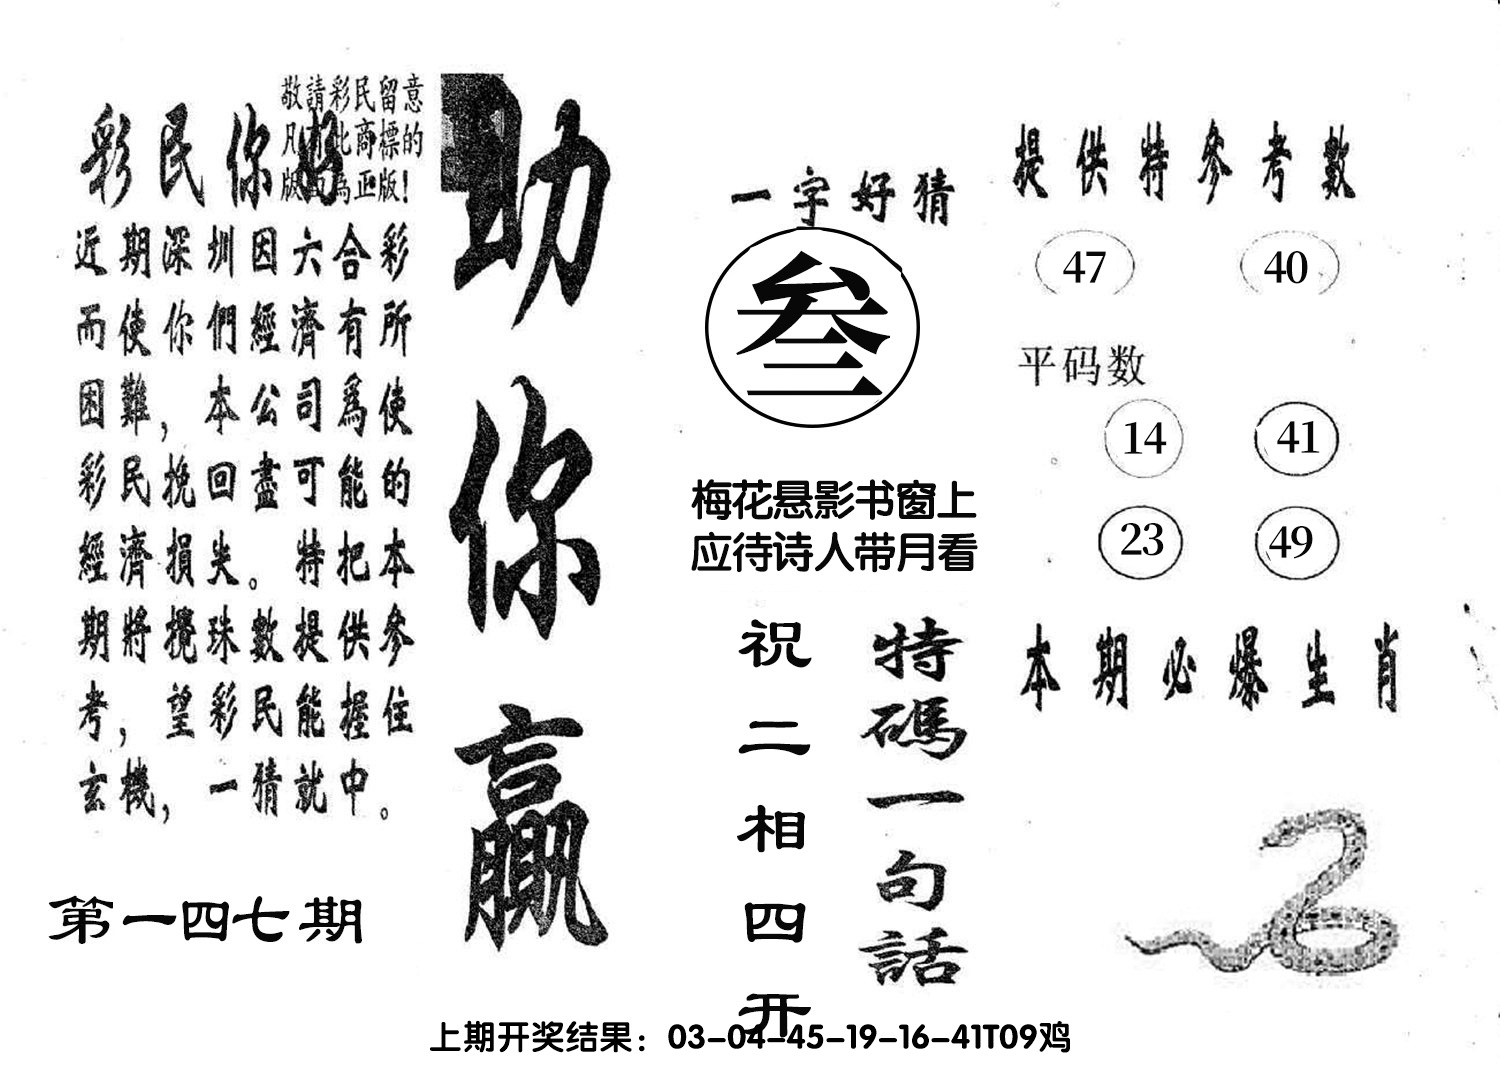 敬請彩民留意
凡有此商標的
版面為正版!
彩民你好
近期深圳因六合彩
而使你們經濟有所
困難，本公司爲使
彩民挽回盡可能的
經濟損失。特把本
期將攪珠數提供參
考，望彩民能握住
玄機，一猜就中。
第一四七期
助你贏
一字好猜
叁
梅花悬影书窗上
应待诗人带月看
特碼一句話
祝二相四开
提供特參考數
47 40
平码数
14 41
23 49
本期必爆生肖
上期开奖结果：03-04-45-19-16-41T09鸡